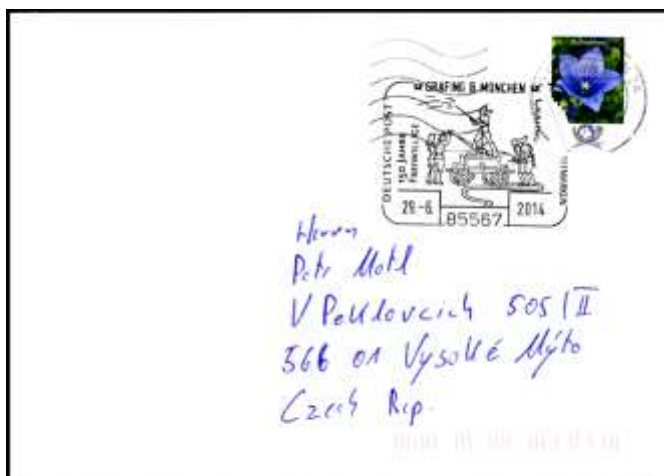 GRAFING B. MÜNCHEN
DEUTSCHE POST
150 JAHRE
FREIWILLIGE
29.-6.
2014
85567
Herrn
Petr Motl
V Peklovcích 505/II
566 01 Vysoké Mýto
Czech Rep.